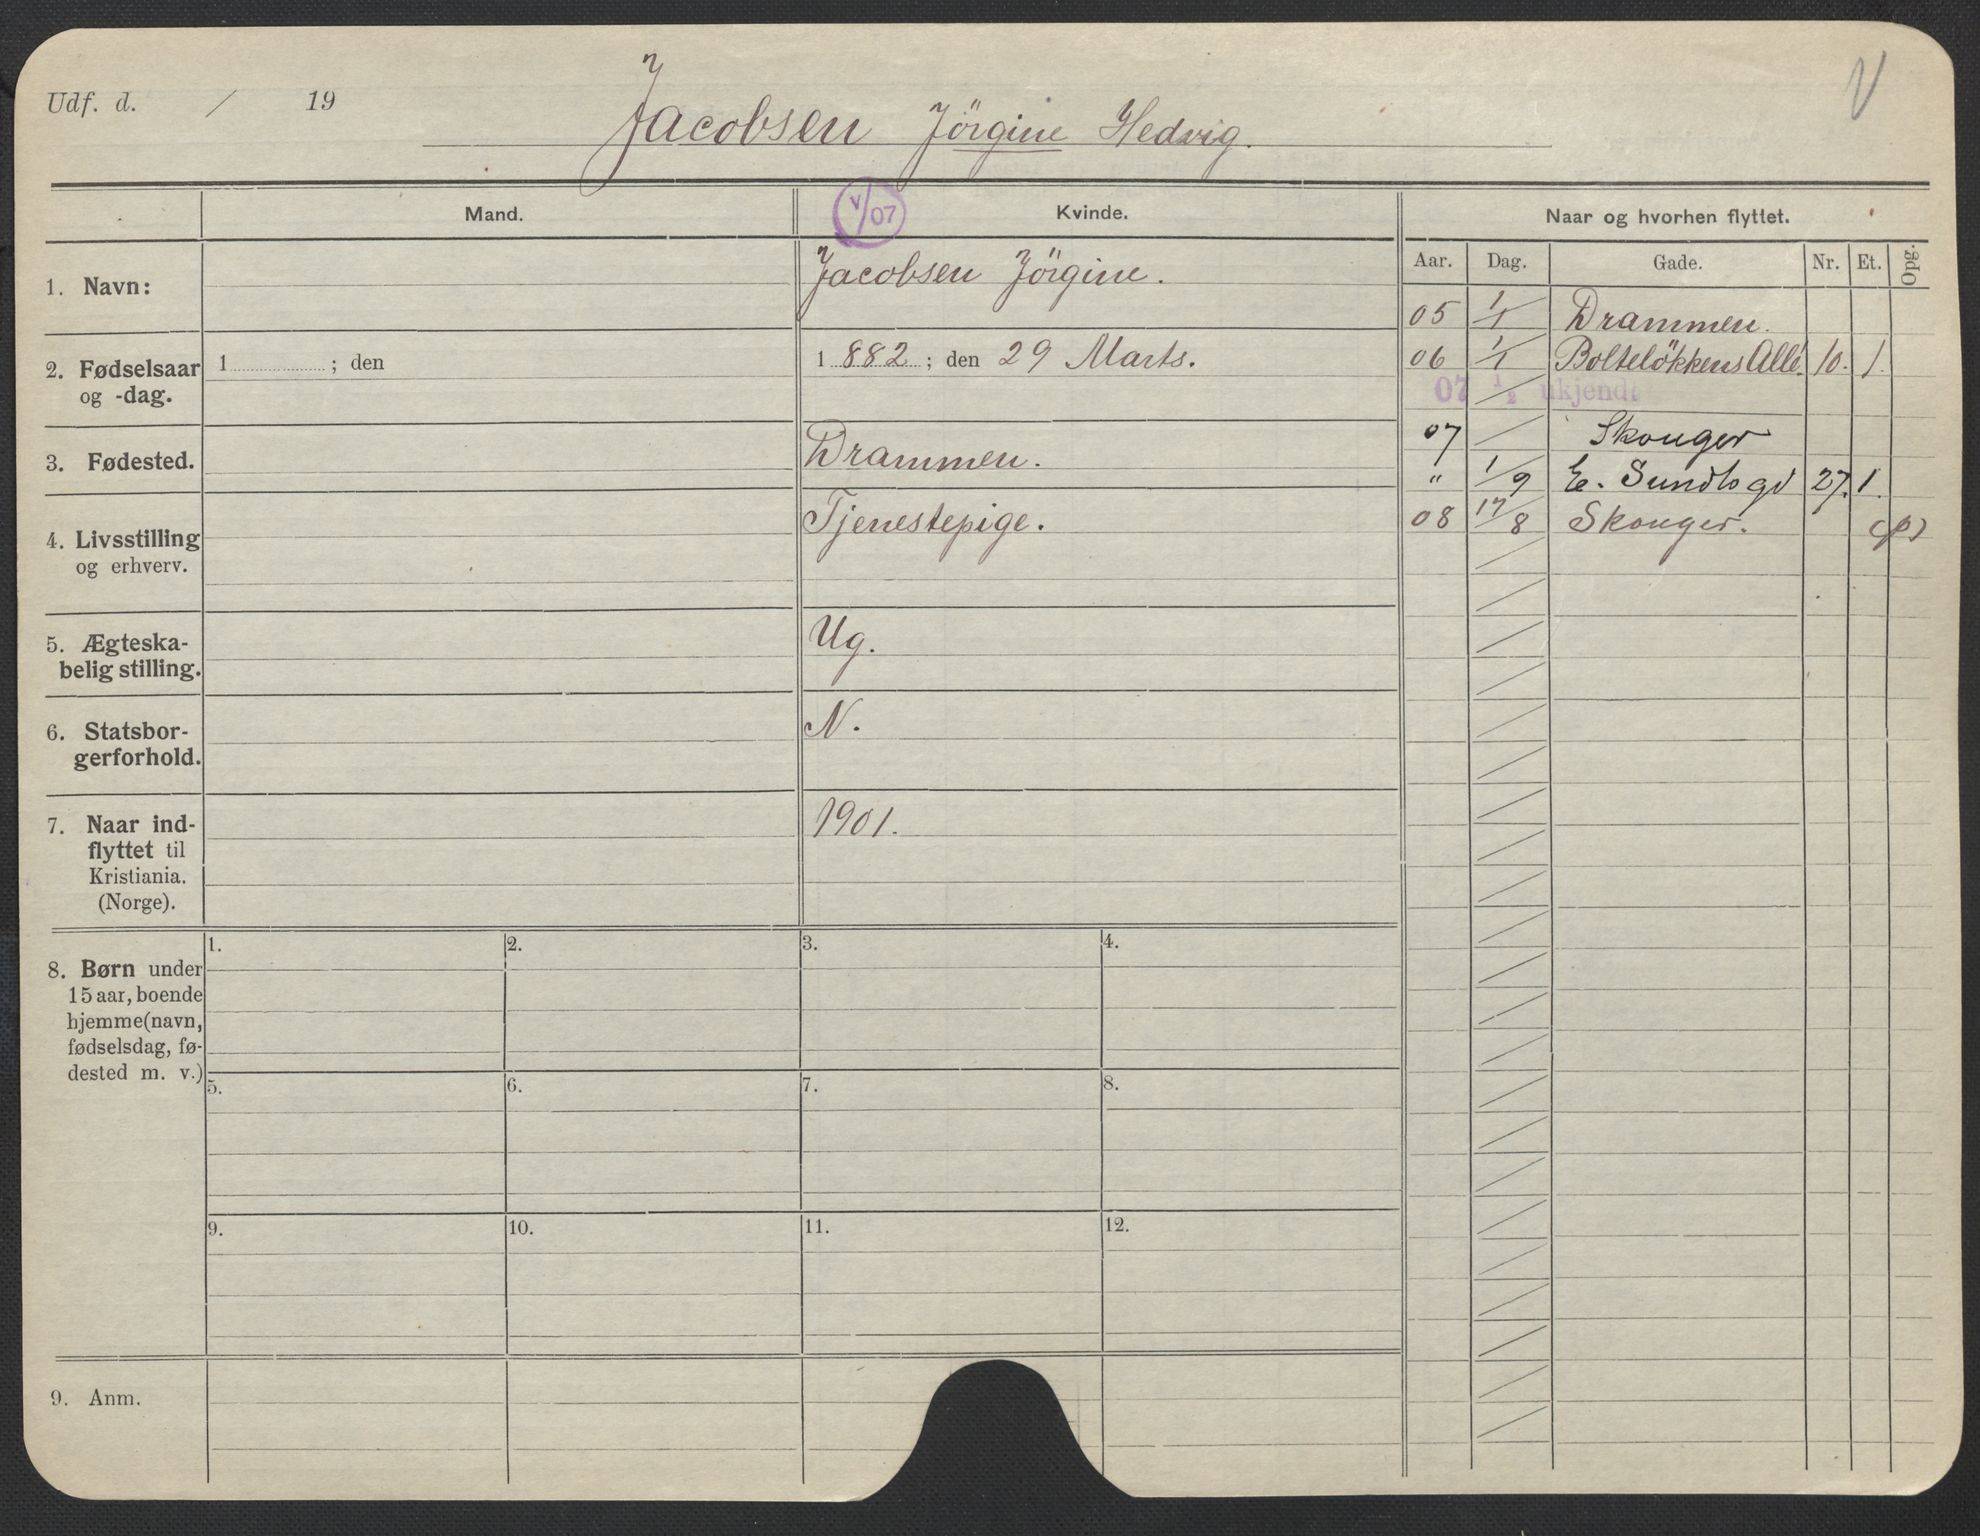 Udf. d. / 19
Jacobsen Jörgine Hedvig.
V
Mand.
V/07
Kvinde.
Naar og hvorhen flyttet.
Aar. Dag. Gade. Nr. Et. Opg.
1. Navn:
Jacobsen Jörgine.
05 1/1 Drammen.
2. Fødselsaar
og -dag.
1 ; den
1 882 ; den 29 Marts.
06 1/1 Bolteløkkens Allé. 10. 1.
07 1/2 ukjendt
07 / Skouger
3. Fødested.
Drammen.
" 1/9 E. Sundtsgd 27. 1.
4. Livsstilling
og erhverv.
Tjenestepige.
08 17/8 Skouger. (p)
5. Ægteska-
belig stilling.
Ug.
6. Statsbor-
gerforhold.
N.
7. Naar ind-
flyttet til
Kristiania.
(Norge).
1901.
8. Børn under
15 aar, boende
hjemme (navn,
fødselsdag, fø-
dested m. v.)
1. 2. 3. 4.
5. 6. 7. 8.
9. 10. 11. 12.
9. Anm.